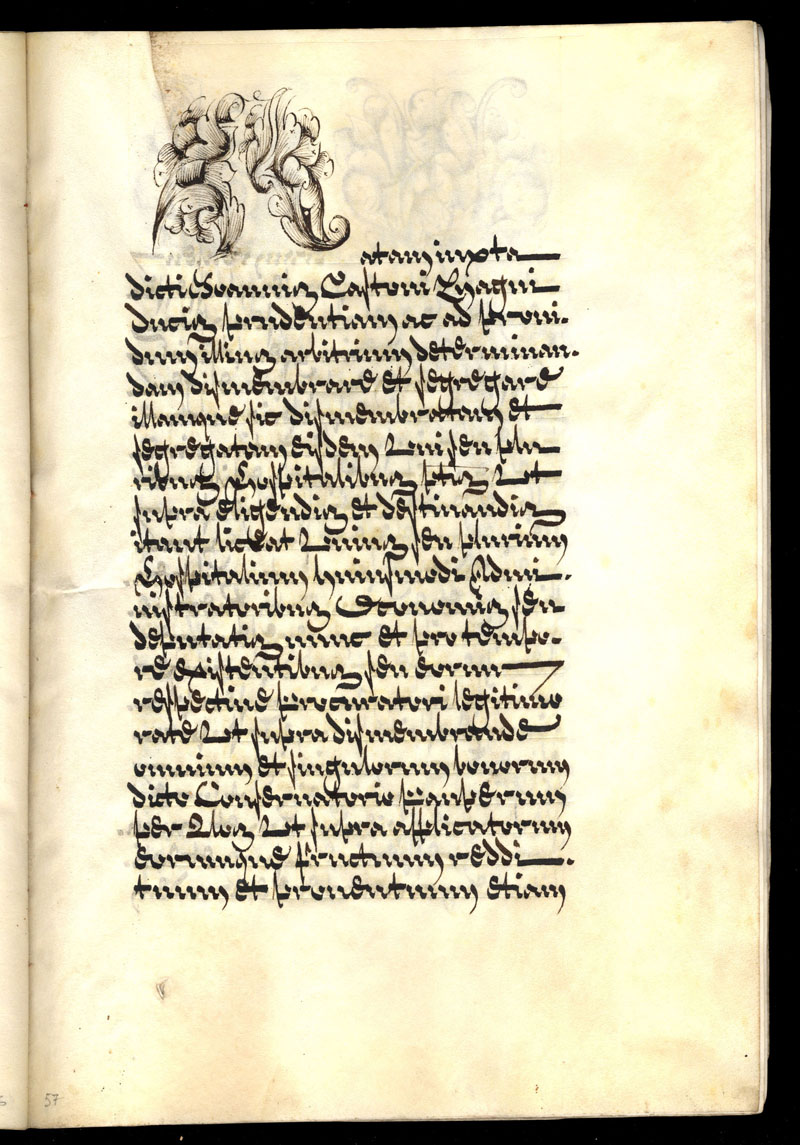 Ratam iuxta
dicti Joannis Gastoni Magni
Ducis prudentiam ac ad proui-
dum illius arbitrium determinan-
dam dismembrare et segregare
illamque sic dismembratam et
segregatam eisdem Vni seu plu
ribus Hospitalibus ptis Vt
supra eligendis et destinandis
itaut liceat Vnius seu plurium
Hospitalium huiusmodi Admi-
nistratoribus Oeconomis seu
deputatis nunc et pro tempo-
re existentibus seu eorum
respectiue procuratori legitimo
rate Vt supra dismembrande
omnium et singulorum bonorum
dicto Conseruatorio Pauperum
per Nos Vt supra applicatorum
eorumque fructuum reddi-
tuum et prouentuum etiam
57